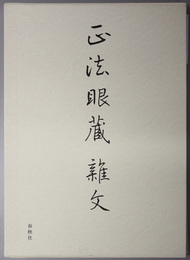 正法眼蔵雜文
春秋社